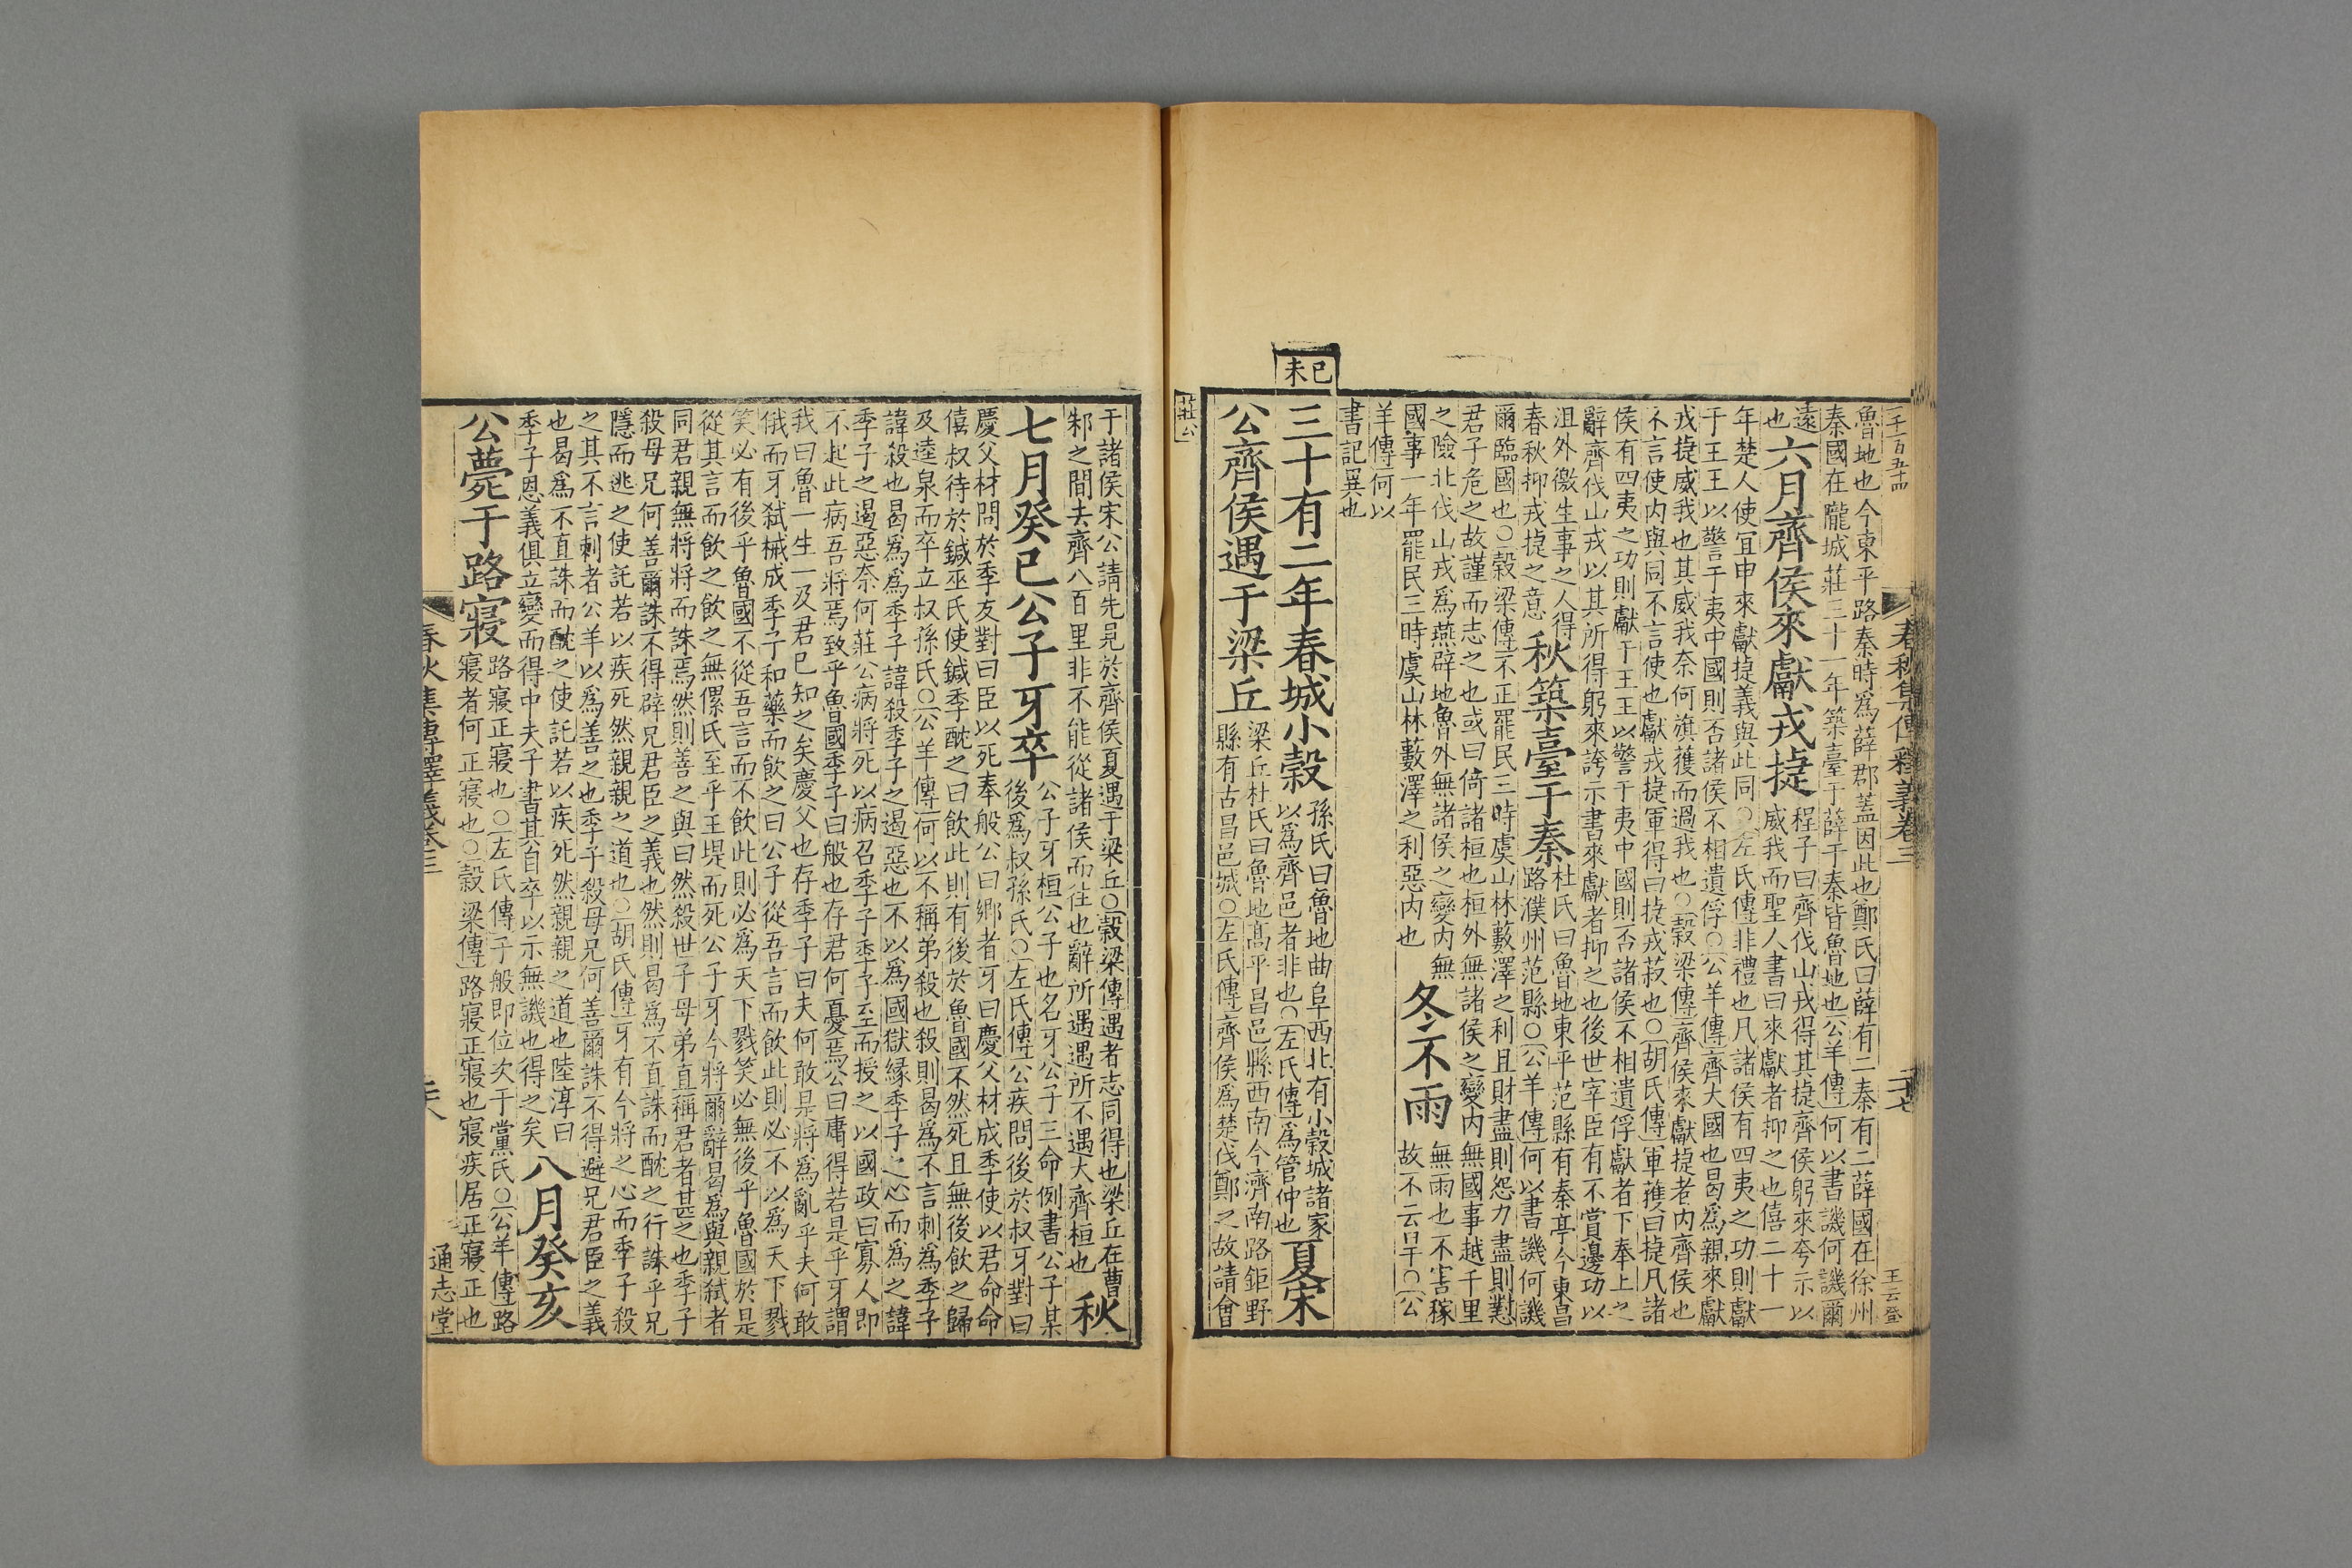 二千一百五十四
春秋集傳釋義卷三
二十七
王云登
魯地也今東平路秦時爲薛郡蓋因此也鄭氏曰薛有二秦有二薛國在徐州
秦國在隴城莊三十一年築臺于薛于秦皆魯地也公羊傳何以書譏何譏爾
遠
也
六月齊侯來獻戎捷
程子曰齊伐山戎得其捷齊侯躬來夸示以
威我而聖人書曰來獻者抑之也僖二十一
年楚人使宜申來獻捷義與此同○左氏傳非禮也凡諸侯有四夷之功則獻
于王王以警于夷中國則否諸侯不相遺俘○公羊傳齊大國也曷爲親來獻
戎捷威我也其威我奈何旗獲而過我也○穀梁傳齊侯來獻捷者内齊侯也
不言使内與同不言使也獻戎捷軍得曰捷戎菽也○胡氏傳軍獲曰捷凡諸
侯有四夷之功則獻于王王以警于夷中國則否諸侯不相遺俘獻者下奉上之
辭齊伐山戎以其所得躬來誇示書來獻者抑之也後世宰臣有不賞邊功以
沮外徼生事之人得
春秋抑戎捷之意
秋築臺于秦
杜氏曰魯地東平范縣有秦亭今東昌
路濮州范縣○公羊傳何以書譏何譏
爾臨國也○穀梁傳不正罷民三時虞山林藪澤之利且財盡則怨力盡則懟
君子危之故謹而志之也或曰倚諸桓也桓外無諸侯之變内無國事越千里
之險北伐山戎爲燕辟地魯外無諸侯之變内無
國事一年罷民三時虞山林藪澤之利惡内也
冬不雨
無雨也不害稼
故不云旱○公
羊傳何以
書記異也
己未
三十有二年春城小穀
孫氏曰魯地曲阜西北有小穀城諸家
以爲齊邑者非也○左氏傳爲管仲也
夏宋
公齊侯遇于梁丘
梁丘杜氏曰魯地髙平昌邑縣西南今濟南路鉅野
縣有古昌邑城○左氏傳齊侯爲楚伐鄭之故請會
莊公
于諸侯宋公請先見於齊侯夏遇于梁丘○穀梁傳遇者志同得也梁丘在曹
邾之間去齊八百里非不能從諸侯而往也辭所遇遇所不遇大齊桓也
秋
七月癸巳公子牙卒
公子牙桓公子也名牙公子三命例書公子某
後爲叔孫氏○左氏傳公疾問後於叔牙對曰
慶父材問於季友對曰臣以死奉般公曰鄉者牙曰慶父材成季使以君命命
僖叔待於鍼巫氏使鍼季酖之曰飲此則有後於魯國不然死且無後飲之歸
及逵泉而卒立叔孫氏○公羊傳何以不稱弟殺也殺則曷爲不言刺爲季子
諱殺也曷爲爲季子諱殺季子之遏惡也不以爲國獄緣季子之心而爲之諱
季子之遏惡奈何莊公病將死以病召季子季子至而授之以國政曰寡人即
不起此病吾將焉致乎魯國季子曰般也存君何憂焉公曰庸得若是乎牙謂
我曰魯一生一及君已知之矣慶父也存季子曰夫何敢是將爲亂乎夫何敢
俄而牙弑械成季子和藥而飲之曰公子從吾言而飲此則必不以爲天下戮
笑必有後乎魯國不從吾言而不飲此則必爲天下戮笑必無後乎魯國於是
從其言而飲之飲之無傫氏至乎王堤而死公子牙今將爾辭曷爲與親弑者
同君親無將將而誅焉然則善之與曰然殺世子母弟直稱君者甚之也季子
殺母兄何善爾誅不得辟兄君臣之義也然則曷爲不直誅而酖之行誅乎兄
隱而逃之使託若以疾死然親親之道也○胡氏傳牙有今將之心而季子殺
之其不言刺者公羊以爲善之也季子殺母兄何善爾誅不得避兄君臣之義
也曷爲不直誅而酖之使託若以疾死然親親之道也陸淳曰
季子恩義俱立變而得中夫子書其自卒以示無譏也得之矣
八月癸亥
公薨于路寢
路寢正寢也○左氏傳子般即位次于黨氏○公羊傳路
寢者何正寢也○穀梁傳路寢正寢也寢疾居正寢正也
春秋集傳釋義卷三
二十八
通志堂